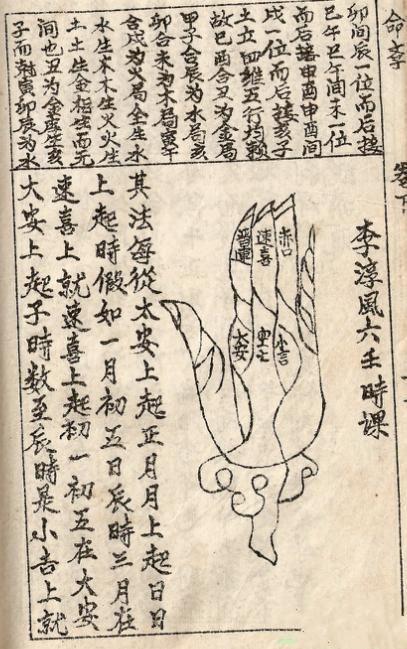 卷下
卯间辰一位而后接
巳午巳午间未一位
而后接申酉申酉间
戌一位而后接亥子
土立四维五行均敷
故巳酉合丑为金局
甲子合辰为水局亥
卯合未为木局寅午
合戌为火局金生水
水生木木生火火生
土土生金相生而无
间也丑为金辰生亥
子而射寅卯辰为水
李淳風六壬時課
赤口
速喜
小吉
空亡
大安
其法每從太安上起正月月上起日日
上起時假如一月初五日辰時三月在
速喜上就速喜上起初一初五在大安
大安上起子時数至辰時是小吉上就